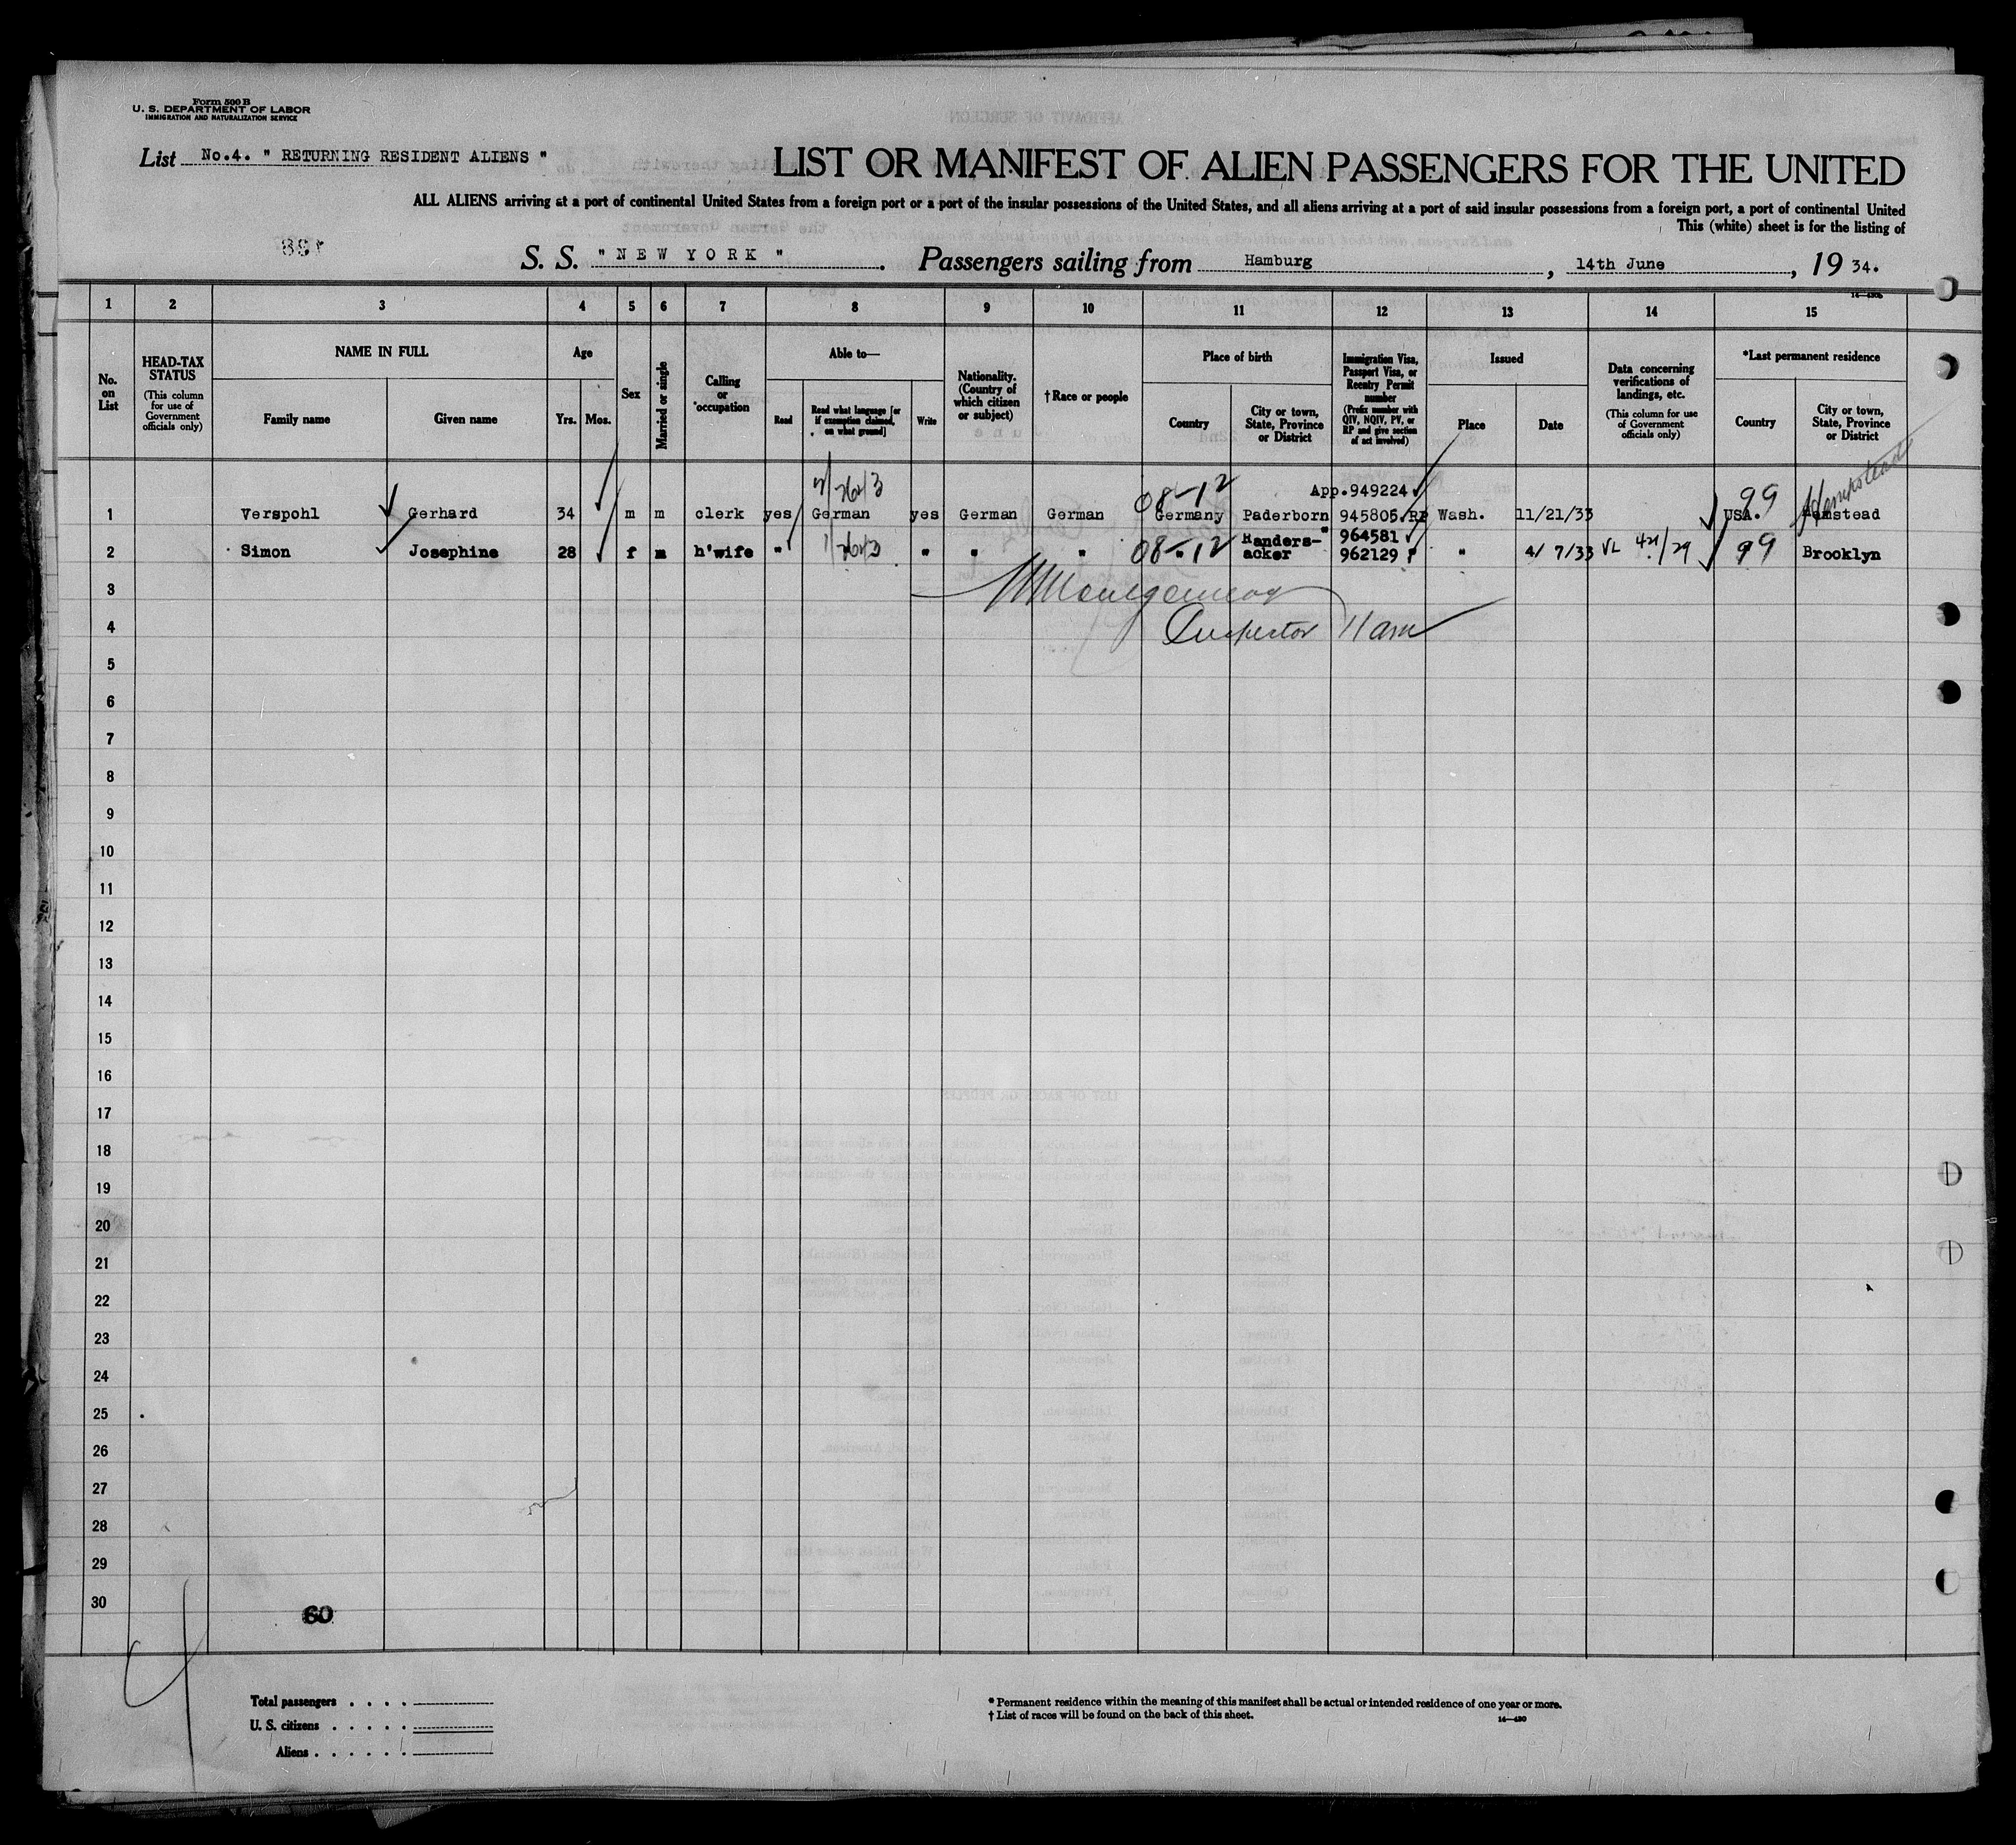 Form 500 B
U. S. DEPARTMENT OF LABOR
IMMIGRATION AND NATURALIZATION SERVICE
List No.4. " RETURNING RESIDENT ALIENS "
LIST OR MANIFEST OF ALIEN PASSENGERS FOR THE UNITED
ALL ALIENS arriving at a port of continental United States from a foreign port or a port of the insular possessions of the United States, and all aliens arriving at a port of said insular possessions from a foreign port, a port of continental United
This (white) sheet is for the listing of
S. S. " N E W Y O R K " . Passengers sailing from Hamburg , 14th June , 19 34.
1 2 3 4 5 6 7 8 9 10 11 12 13 14 15
No. on List
HEAD-TAX STATUS (This column for use of Government officials only)
NAME IN FULL
Family name Given name
Age
Yrs. Mos.
Sex
Married or single
Calling or occupation
Able to—
Read Read what language [or if exemption claimed, on what ground] Write
Nationality. (Country of which citizen or subject)
†Race or people
Place of birth
Country City or town, State, Province or District
Immigration Visa, Passport Visa, or Reentry Permit number (Prefix number with QIV, NQIV, PV, or RP and give section of act involved)
Issued
Place Date
Data concerning verifications of landings, etc. (This column for use of Government officials only)
*Last permanent residence
Country City or town, State, Province or District
08-12 App.949224 99 Hempstead
1 Verspohl Gerhard 34 m m clerk yes German yes German German Germany Paderborn 945805.RP Wash. 11/21/33 USA. Hemstead
2 Simon Josephine 28 f m h'wife " " " " 08-12 " Randersacker 964581 962129 " 4/ 7/33 VL 99 Brooklyn
3
Montgomery
4
Inspector 11 am
5
6
7
8
9
10
11
12
13
14
15
16
17
18
19
20
21
22
23
24
25
26
27
28
29
30
60
Total passengers . . . .
U. S. citizens . . . . .
Aliens . . . . . .
* Permanent residence within the meaning of this manifest shall be actual or intended residence of one year or more.
† List of races will be found on the back of this sheet.
14—430